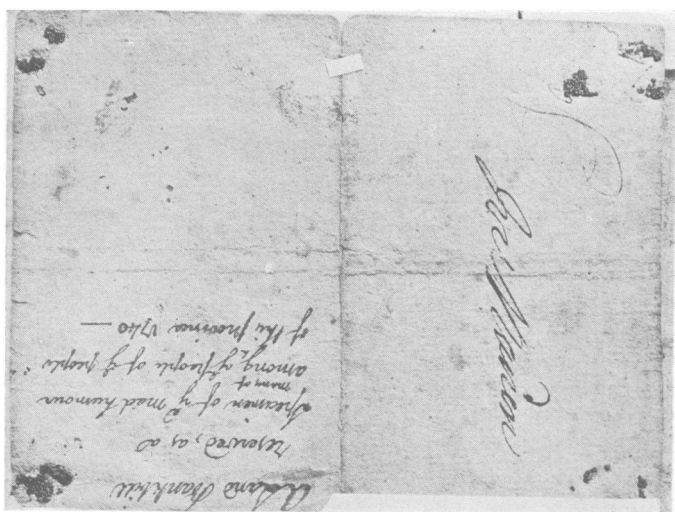 A Land Bankbill
reserved, as a
specimen of yͤ mad humour
many of
among ‸ yͤ people of yͤ people
of this province 1740 —
Mason